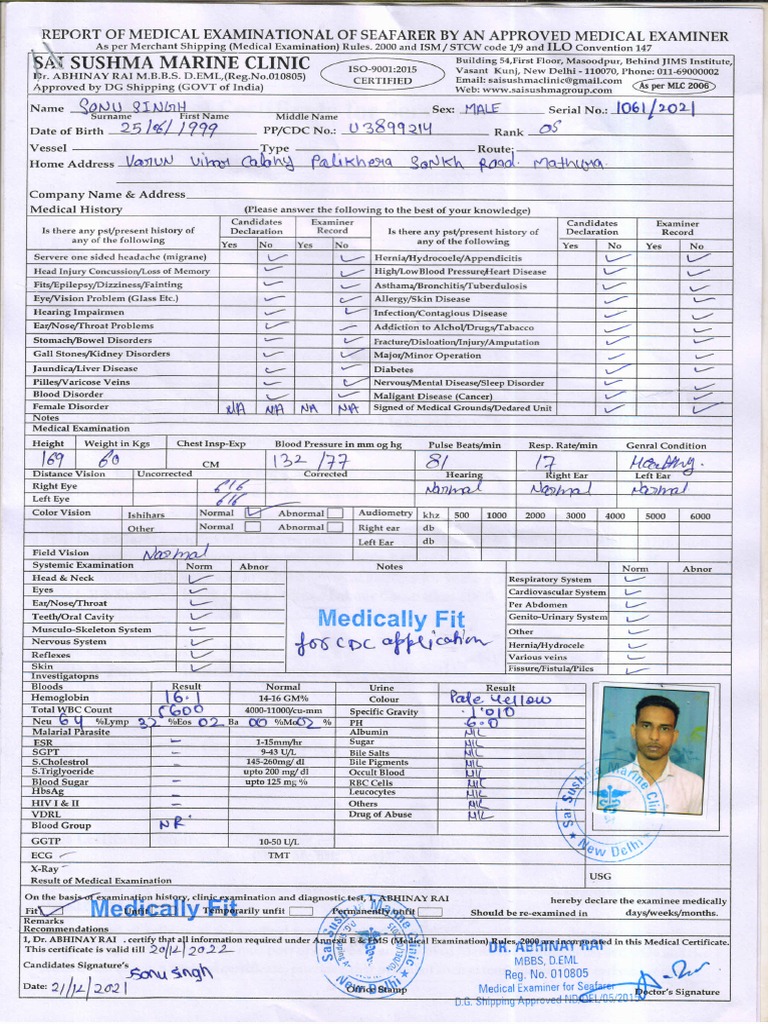 REPORT OF MEDICAL EXAMINATIONAL OF SEAFARER BY AN APPROVED MEDICAL EXAMINER
As per Merchant Shipping (Medical Examination) Rules. 2000 and ISM / STCW code 1/9 and ILO Convention 147
SAI SUSHMA MARINE CLINIC
Dr. ABHINAY RAI M.B.B.S. D.EML,(Reg.No.010805)
Approved by DG Shipping (GOVT of India)
ISO-9001:2015
CERTIFIED
Building 54,First Floor, Masoodpur, Behind JIMS Institute,
Vasant Kunj, New Delhi - 110070, Phone: 011-69000002
Email: saisushmaclinic@gmail.com
Web: www.saisushmagroup.com
As per MLC 2006
Name SONU SINGH Sex: MALE Serial No.: 1061/2021
Surname First Name Middle Name
Date of Birth 25/8/1999 PP/CDC No.: U3899214 Rank OS
Vessel Type Route:
Home Address Varun Vihar Calony Palikhera Sonkh Road. Mathura.
Company Name & Address
Medical History (Please answer the following to the best of your knowledge)
Is there any pst/present history of any of the following Candidates Declaration Examiner Record Is there any pst/present history of any of the following Candidates Declaration Examiner Record
Yes No Yes No Yes No Yes No
Servere one sided headache (migrane) Hernia/Hydrocoele/Appendicitis
Head Injury Concussion/Loss of Memory High/LowBlood Pressure/Heart Disease
Fits/Epilepsy/Dizziness/Fainting Asthama/Bronchitis/Tuberdulosis
Eye/Vision Problem (Glass Etc.) Allergy/Skin Disease
Hearing Impairmen Infection/Contagious Disease
Ear/Nose/Throat Problems Addiction to Alchol/Drugs/Tabacco
Stomach/Bowel Disorders Fracture/Disloation/Injury/Amputation
Gall Stones/Kidney Disorders Major/Minor Operation
Jaundica/Liver Disease Diabetes
Pilles/Varicose Veins Nervous/Mental Disease/Sleep Disorder
Blood Disorder Maligant Disease (Cancer)
Female Disorder NA NA NA NA Signed of Medical Grounds/Dedared Unit
Notes
Medical Examination
Height Weight in Kgs Chest Insp-Exp Blood Pressure in mm og hg Pulse Beats/min Resp. Rate/min Genral Condition
169 60 CM 132 /77 81 17 Healthy.
Distance Vision Uncorrected Corrected Hearing Right Ear Left Ear
Right Eye 6/6 Normal Normal Normal
Left Eye 6/6
Color Vision Ishihars Normal Abnormal Audiometry khz 500 1000 2000 3000 4000 5000 6000
Other Normal Abnormal Right ear db
Left Ear db
Field Vision Normal
Systemic Examination Norm Abnor Notes Norm Abnor
Head & Neck Respiratory System
Eyes Cardiovascular System
Ear/Nose/Throat Per Abdomen
Teeth/Oral Cavity Genito-Urinary System
Musculo-Skeleton System Other
Nervous System Hernia/Hydrocele
Reflexes Various veins
Skin Fissure/Fistula/Piles
Medically Fit
for CDC application
Investigatopns
Bloods Result Normal Urine Result
Hemoglobin 16.1 14-16 GM% Colour Pale yellow
Total WBC Count 5600 4000-11000/cu-mm Specific Gravity 1.010
Neu 64 %Lymp 32 %Eos 02 Ba 00 %Mo 02 % PH 6.0
Malarial Parasite Albumin NIL
ESR 1-15mm/hr Sugar NIL
SGPT 9-43 U/L Bile Salts NIL
S.Cholestrol 145-260mg/ dl Bile Pigments NIL
S.Triglyeoride upto 200 mg/ dl Occult Blood NIL
Blood Sugar upto 125 mg % RBC Cells NIL
HbsAg Leucocytes NIL
HIV I & II Others NIL
VDRL Drug of Abuse NIL
Blood Group NR
GGTP 10-50 U/L
ECG TMT
X-Ray
Result of Medical Examination USG
Sai Sushma Marine Clinic
New Delhi
On the basis of examination history, clinic examination and diagnostic test, I, ABHINAY RAI hereby declare the examinee medically
Fit Unfit Temporarily unfit Permanently unfit Should be re-examined in days/weeks/months.
Medically Fit
Remarks
Recommendations
1, Dr. ABHINAY RAI . certify that all information required under Annexu E & FMS (Medical Examination) Rules, 2000 are incorporated in this Medical Certificate.
This certificate is valid till 20/12/2022
Candidates Signature's Sonu Singh
Date: 21/12/2021
Office Stamp
DR. ABHINAY RAI
MBBS, D.EML
Reg. No. 010805
Medical Examiner for Seafarer
D.G. Shipping Approved ND/DEL/05/2015
Doctor's Signature